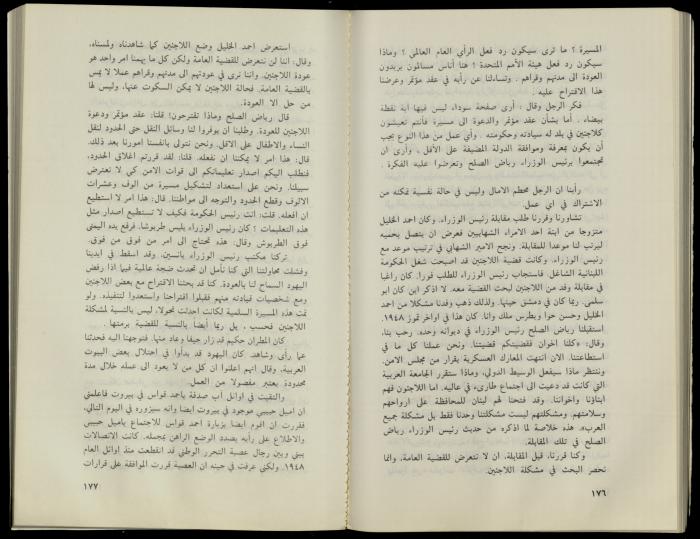 المسيرة ؟ ما ترى سيكون رد فعل الرأي العام العالمي ؟ وماذا
سيكون رد فعل هيئة الأمم المتحدة ؟ هنا أناس مسالمون يريدون
العودة الى مدنهم وقراهم . وتساءلنا عن رأيه في عقد مؤتمر وعرضنا
هذا الاقتراح عليه .
فكر الرجل وقال : أرى صفحة سوداء، ليس فيها أية نقطة
بيضاء . أما بشأن عقد مؤتمر والدعوة الى مسيرة فأنتم تعيشون
كلاجئين في بلد له سيادته وحكومته . وأي عمل من هذا النوع يجب
أن يكون بمعرفة وموافقة الدولة المضيفة على الأقل ، وأرى ان
تجتمعوا برئيس الوزراء رياض الصلح وتعرضوا عليه الفكرة .
رأينا ان الرجل محطم الآمال وليس في حالة نفسية تمكنه من
الاشتراك في اي عمل.
تشاورنا وقررنا طلب مقابلة رئيس الوزراء. وكان احمد الخليل
متزوجا من ابنة احد الامراء الشهابيين فعرض ان يتصل بحميه
ليرتب لنا موعدا للمقابلة. ونجح الامير الشهابي في ترتيب موعد مع
رئيس الوزراء. وكانت قضية اللاجئين قد اصبحت شغل الحكومة
اللبنانية الشاغل. فاستجاب رئيس الوزراء للطلب فورا. كان راغبا
في مقابلة وفد من اللاجئين لبحث القضية معه. لا اذكر اين كان ابو
سلمى. ربما كان في دمشق حينها. ولذلك ذهب وفدنا مشكلا من احمد
الخليل وحسن حوا وبطرس ملك وانا. كان هذا في اواخر تموز ١٩٤٨.
استقبلنا رياض الصلح رئيس الوزراء في ديوانه وحده. رحب بنا،
وقال: «كلنا اخوان فقضيتكم قضيتنا. ونحن عملنا كل ما في
استطاعتنا. الان انتهت المعارك العسكرية بقرار من مجلس الامن.
وننتظر ماذا سيفعل الوسيط الدولي، وماذا ستقرر الجامعة العربية
التي كانت قد دعيت الى اجتماع طارىء في عاليه. اما اللاجئون فهم
ابناؤنا واخواننا. وقد فتحنا لهم لبنان للمحافظة على ارواحهم
وسلامتهم. ومشكلتهم ليست مشكلتنا وحدنا فقط بل مشكلة جميع
العرب». هذه خلاصة لما اذكره من حديث رئيس الوزراء رياض
الصلح في تلك المقابلة.
وكنا قررنا، قبل المقابلة، ان لا نتعرض للقضية العامة، وانما
نحصر البحث في مشكلة اللاجئين.
١٧٦
استعرض احمد الخليل وضع اللاجئين كما شاهدناه ولمسناه،
وقال: اننا لن نتعرض للقضية العامة ولكن كل ما يهمنا امر واحد هو
عودة اللاجئين. واننا نرى في عودتهم الى مدنهم وقراهم عملا لا يمس
بالقضية العامة. فحالة اللاجئين لا يمكن السكوت عنها، وليس لها
من حل الا العودة.
قال رياض الصلح وماذا تقترحون؟ قلنا: عقد مؤتمر ودعوة
اللاجئين للعودة. وطلبنا ان يوفروا لنا وسائل النقل حتى الحدود لنقل
النساء والاطفال على الاقل. ونحن نتولى بأنفسنا امورنا بعد ذلك.
قال: هذا امر لا يمكننا ان نفعله. قلنا: لقد قررتم اغلاق الحدود،
فنطلب اليكم اصدار تعليماتكم الى قوات الامن كي لا تعترض
سبيلنا. ونحن على استعداد لتشكيل مسيرة من الوف وعشرات
الالوف وقطع الحدود والتوجه الى مواطننا. قال: هذا امر لا استطيع
ان افعله. قلت: انت رئيس الحكومة فكيف لا تستطيع اصدار مثل
هذه التعليمات ؟ كان رئيس الوزراء يلبس طربوشا. فرفع يده اليمنى
فوق الطربوش وقال: هذه تحتاج الى امر من فوق من فوق.
تركنا مكتب رئيس الوزراء يائسين. وقد اسقط في ايدينا
وفشلت محاولتنا التي كنا نأمل ان تحدث ضجة عالمية فيما اذا رفض
اليهود السماح لنا بالعودة. كنا قد بحثنا الاقتراح مع بعض اللاجئين
ومع شخصيات قيادية منهم فقبلوا اقتراحنا واستعدوا لتنفيذه. ولو
تمت هذه المسيرة السلمية لكانت احدثت تحولا، ليس بالنسبة لمشكلة
اللاجئين فحسب ، بل ربما أيضا بالنسبة للقضية برمتها .
كان المطران حكيم قد زار حيفا وعاد منها. فتوجهنا اليه فحدثنا
عما رأى وشاهد. كان اليهود قد بدأوا في احتلال بعض البيوت
العربية، وقال انهم اعلنوا ان كل من لا يعود الى عمله خلال مدة
محدودة يعتبر مفصولا من العمل.
والتقيت في اوائل آب صدفة بأحمد قواس في بيروت فأعلمني
ان اميل حبيبي موجود في بيروت ايضا وانه سيزوره في اليوم التالي،
فقررت ان اقوم ايضا بزيارة احمد قواس للاجتماع باميل حبيبي
والاطلاع على رأيه بصدد الوضع الراهن بمجمله. كانت الاتصالات
بيني وبين رجال عصبة التحرر الوطني قد انقطعت منذ اوائل العام
١٩٤٨. ولكني عرفت في حينه ان العصبة قررت الموافقة على قرارات
١٧٧